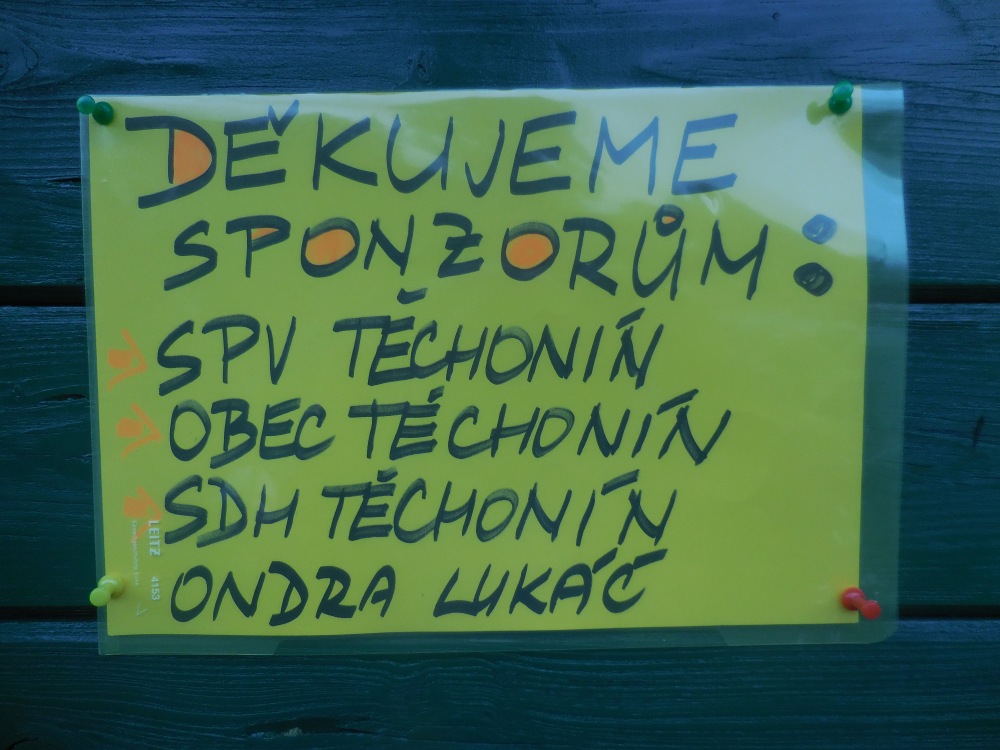 DĚKUJEME
SPONZORŮM:
SPV TĚCHONÍN
OBEC TĚCHONÍN
SDH TĚCHONÍN
ONDRA LUKÁČ
LEITZ 4153